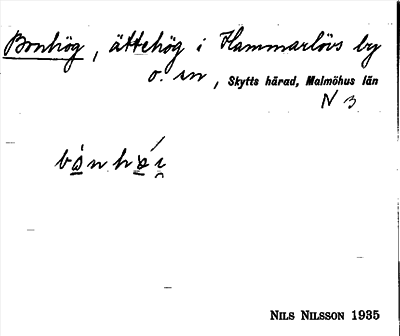 Bonhög, ättehög i Hammarlövs by
o. sn, Skytts härad, Malmöhus län
N 3
NILS NILSSON 1935